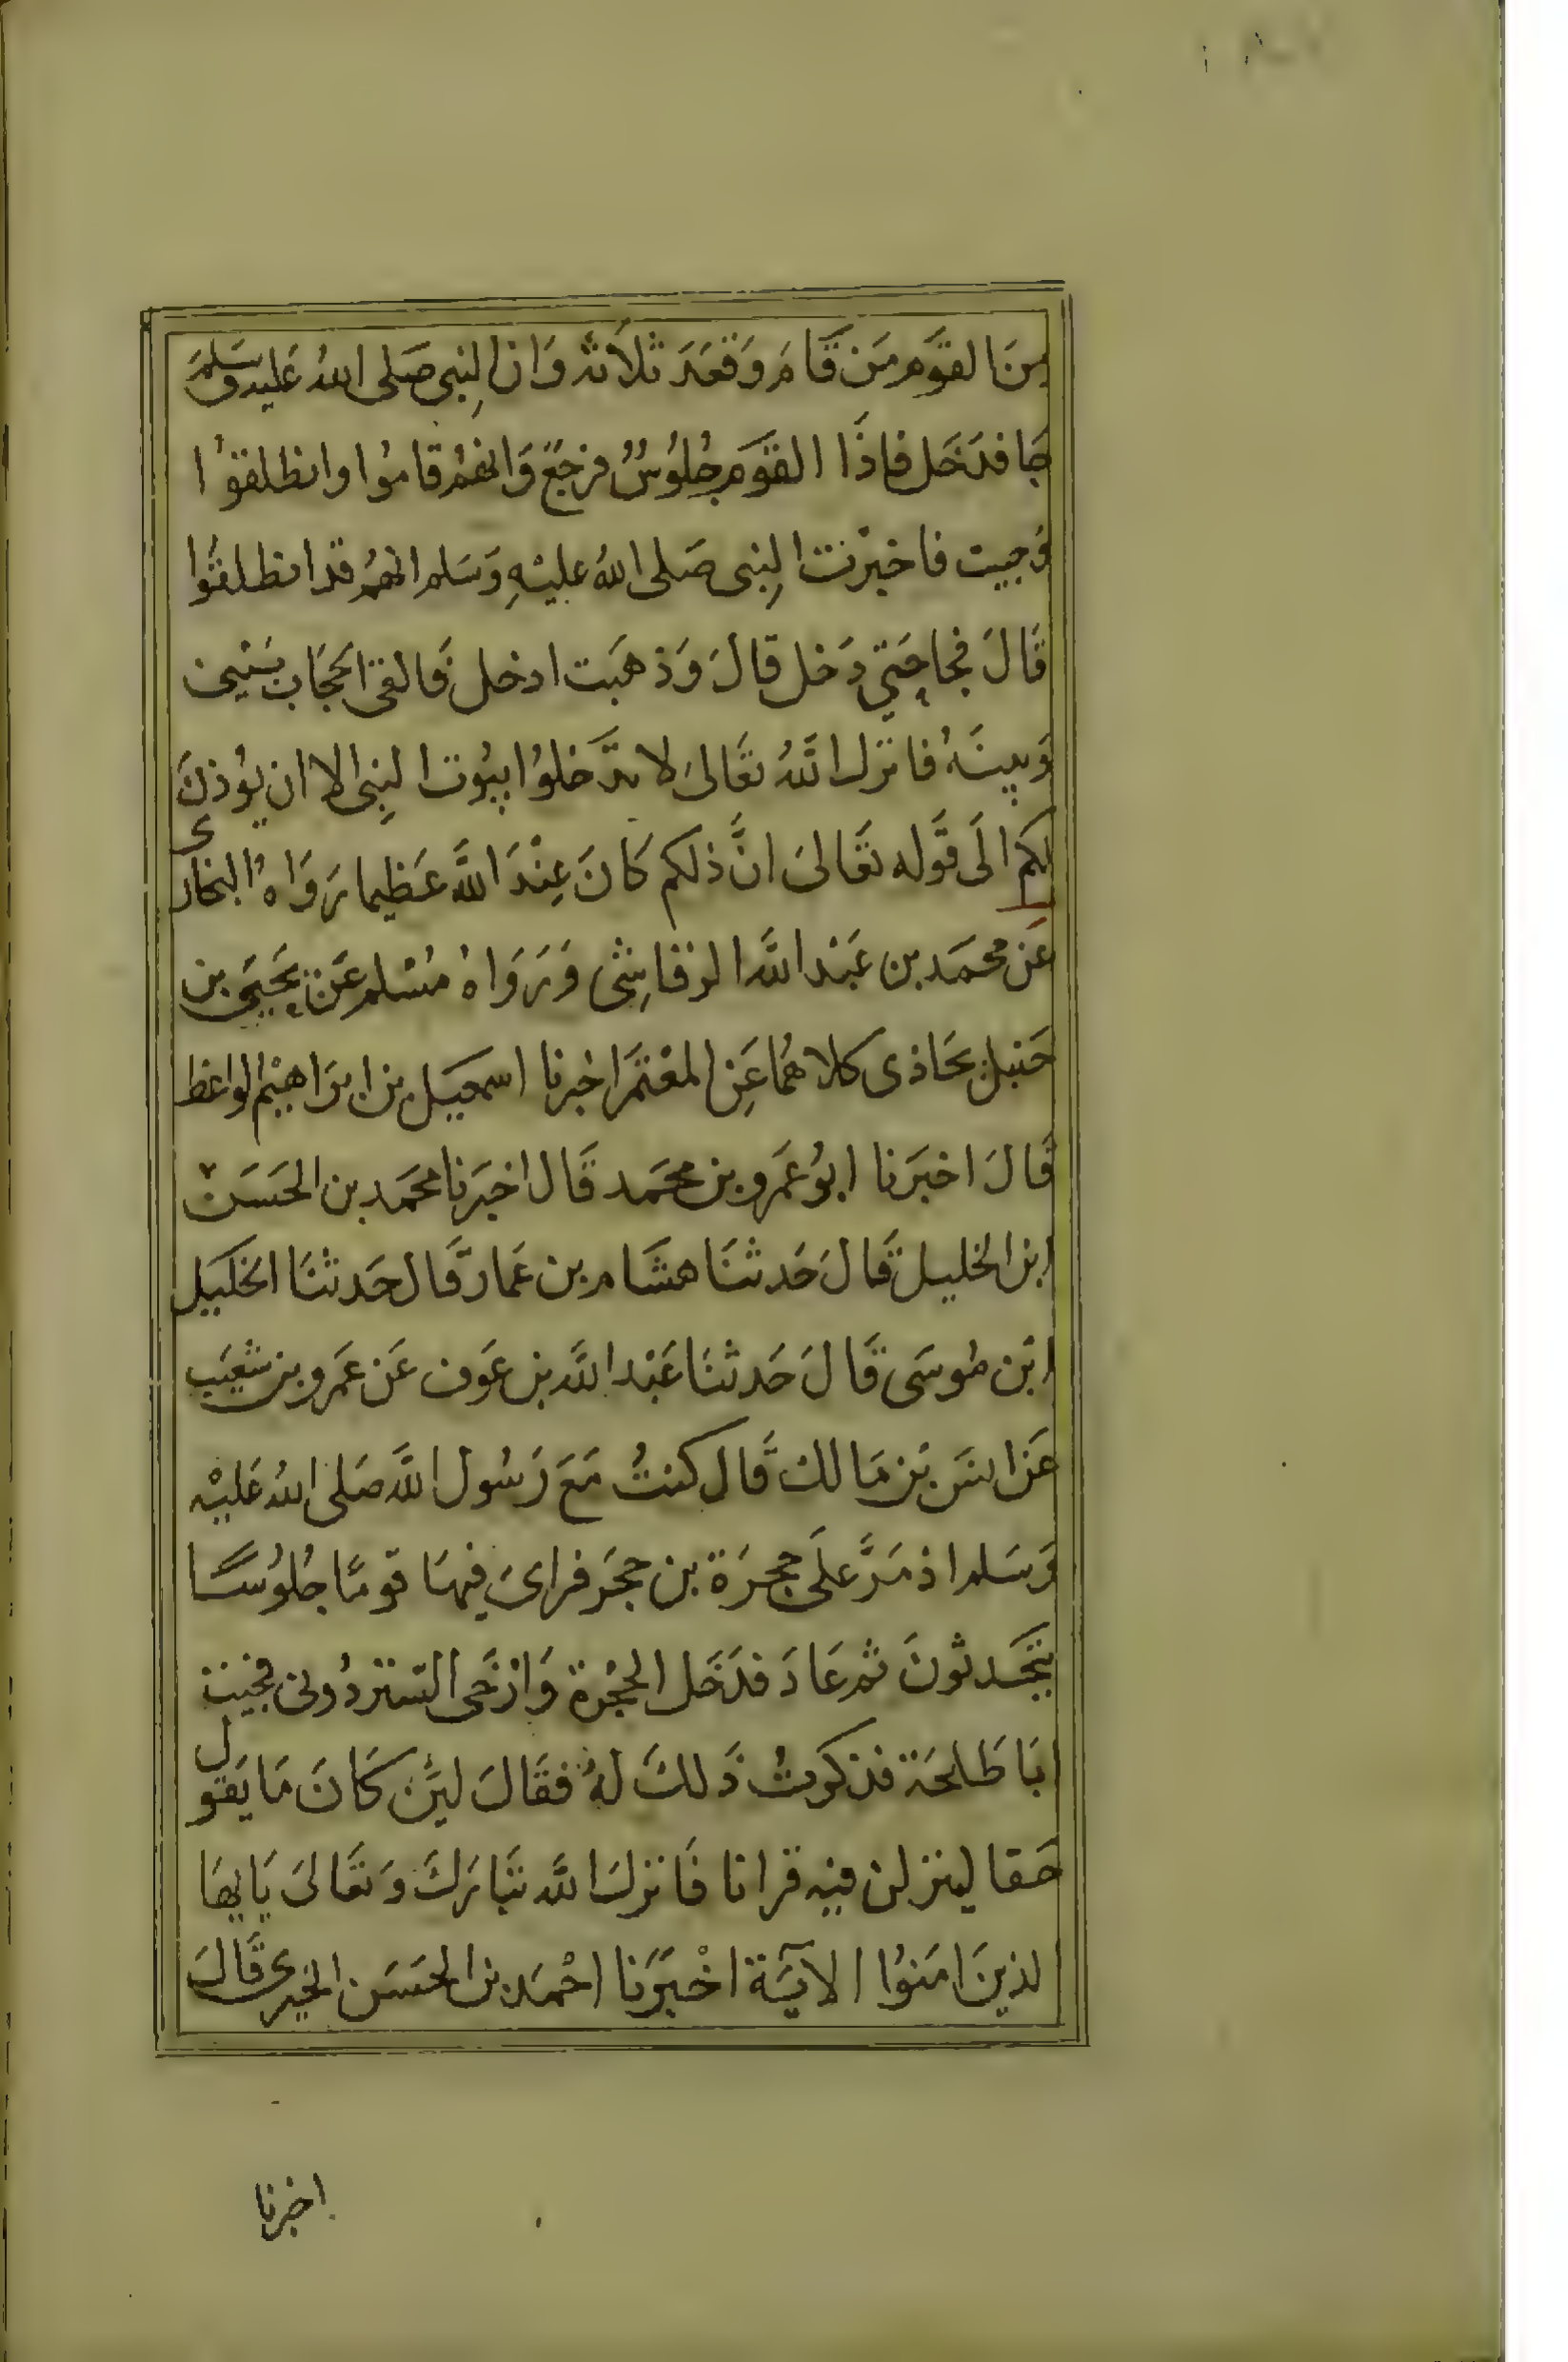 من القوم من قام وقعد ثلاثة وان النبي صلى الله عليه وسلم
جا فدخل فاذا القوم جلوس فرجع وانهم قاموا وانطلقوا
فجيت فاخبرت النبي صلى الله عليه وسلم انهم قد انطلقوا
قال فجا حتي دخل قال وذهبت ادخل فالقى الحجاب بيني
وبينه فانزل الله تعالى لا تدخلوا بيوت النبي الا ان يوذن
لكم الى قوله تعالى ان ذلكم كان عند الله عظيما رواه البخاري
عن محمد بن عبد الله الرقاشي ورواه مسلم عن يحيى بن
حنبل بحاذى كلاهما عن المعتمر اخبرنا اسمعيل بن ابراهيم الواعظ
قال اخبرنا ابو عمرو بن محمد قال اخبرنا محمد بن الحسن
ابن الخليل قال حدثنا هشام بن عمار قال حدثنا الخليل
ابن موسى قال حدثنا عبد الله بن عوف عن عمرو بن شعيب
عن انس بن مالك قال كنت مع رسول الله صلى الله عليه
وسلم اذ مر على حجرة بن حجر فراى فيها قوما جلوسا
يتحدثون ثم عاد فدخل الحجرة وارخى الستر دوني فجيت
ابا طلحة فذكرت ذلك له فقال لئن كان ما يقول
حقا لينزلن فيه قرانا فانزل الله تبارك وتعالى يايها
الذين امنوا الاية اخبرنا احمد بن الحسن الحيري قال
اخبرنا